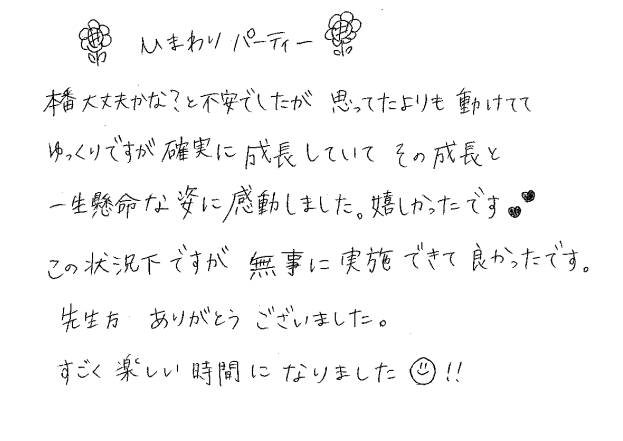 ひまわりパーティー
本番大丈夫かな?と不安でしたが 思ってたよりも 動けてて
ゆっくりですが確実に成長していて その成長と
一生懸命な姿に感動しました。嬉しかったです
この状況下ですが 無事に実施できて良かったです。
先生方 ありがとうございました。
すごく楽しい時間になりました!!